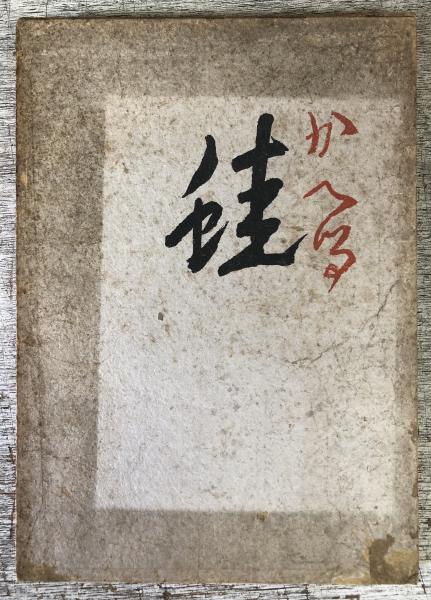 かへる
蛙